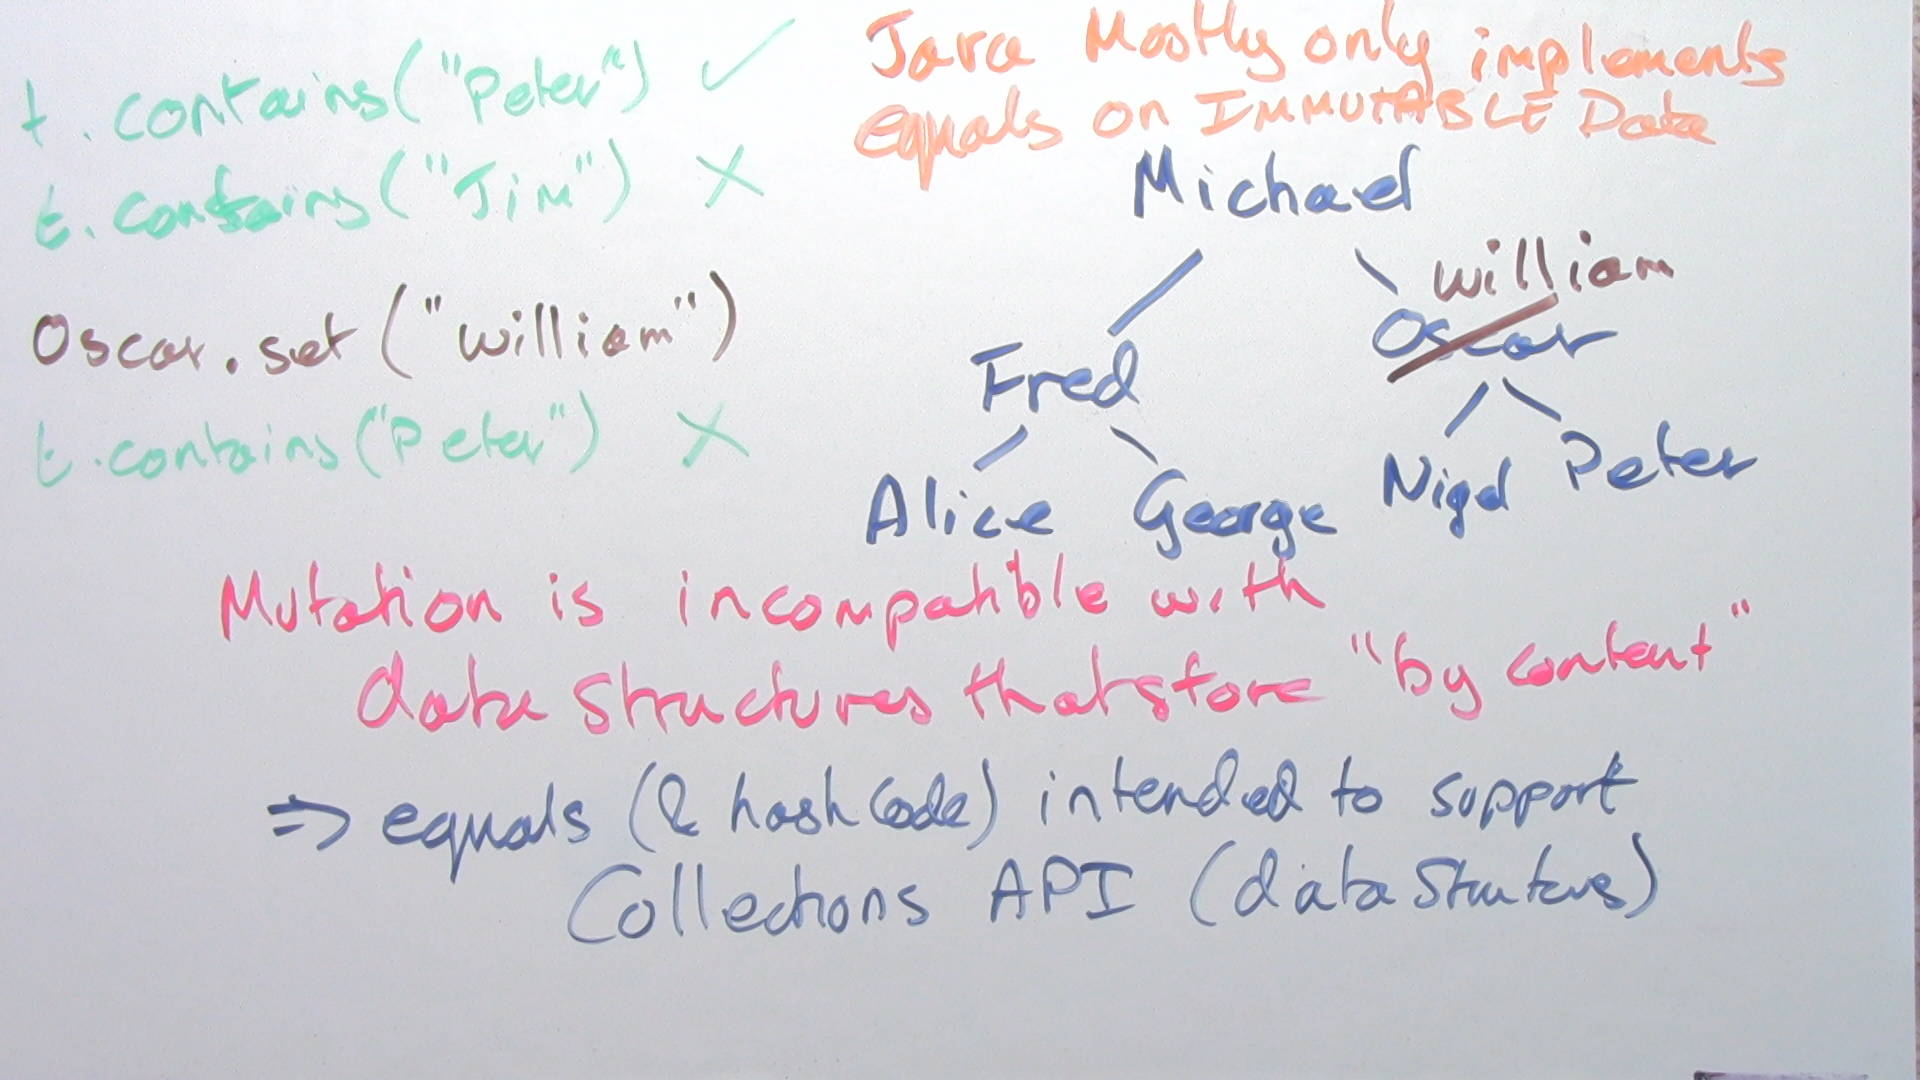 t.contains("Peter") ✓
t.contains("Jim") X
Oscar.set("william")
t.contains("Peter") X
Java Mostly only implements
equals on IMMUTABLE Data
Michael
william
Fred Oscar
Alice George Nigel Peter
Mutation is incompatible with
data structures that store "by content"
⇒ equals (& hashCode) intended to support
Collections API (data structures)